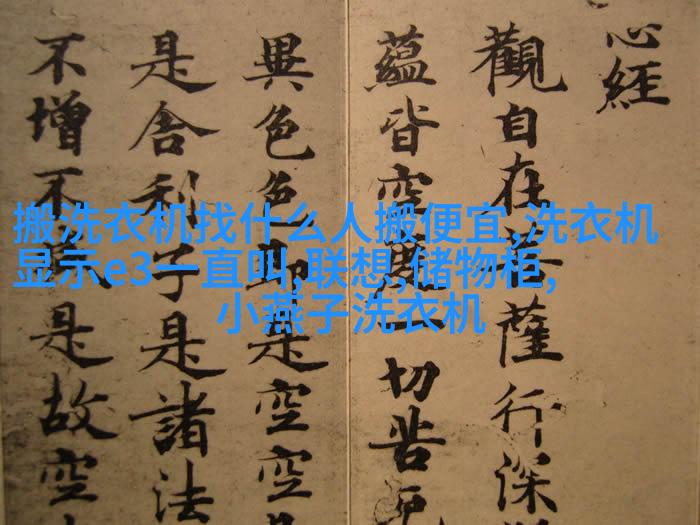 搬洗衣机找什么人搬便宜,洗衣机
显示e3一直叫,联想,储物柜,
小燕子洗衣机
心經
觀自在菩薩行深
蘊皆空度一切苦厄
異色色即是空空
是舍利子是諸法
不增不減是故空